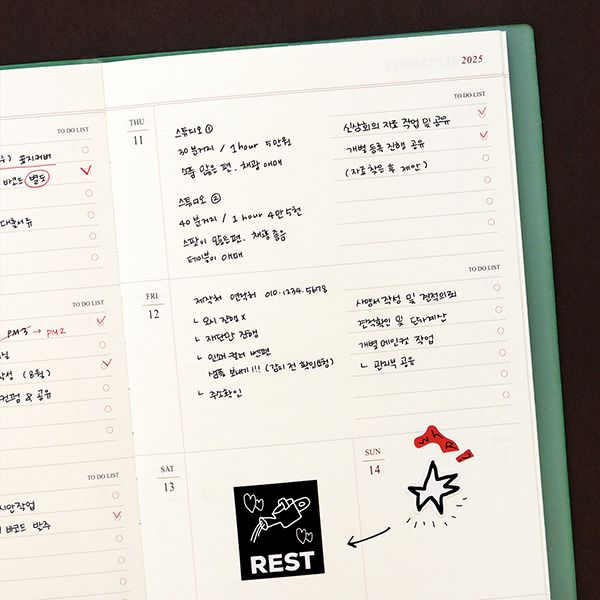 SEPTEMBER
2025
TO DO LIST
공지커버
바코드 별도
TO DO LIST
PM 3 → PM 2
(8월)
& 공유
TO DO LIST
시안작업
바코드 반주
THU
11
TO DO LIST
스튜디오 ①
30분거리 / 1 hour 5만원
소품 많은 편, 채광 애매
스튜디오 ②
40분거리 / 1 hour 4만 5천
스팟이 많은편, 채광 좋음
테이블이 애매
신상회의 자료 작업 및 공유
개별 등록 진행 공유
(자료 찾은 후 제안)
FRI
12
TO DO LIST
제작처 연락처 010-1234-5678
ㄴ 오시 진행 X
ㄴ 재단만 진행
ㄴ 인쇄 컬러
샘플 보내기!!! (감리 전 확인요청)
ㄴ 주소확인
사양서 작성 및 견적의뢰
견적확인 및 단가계산
개별 메인컷 작업
ㄴ 관리부 공유
SAT
13
REST
SUN
14